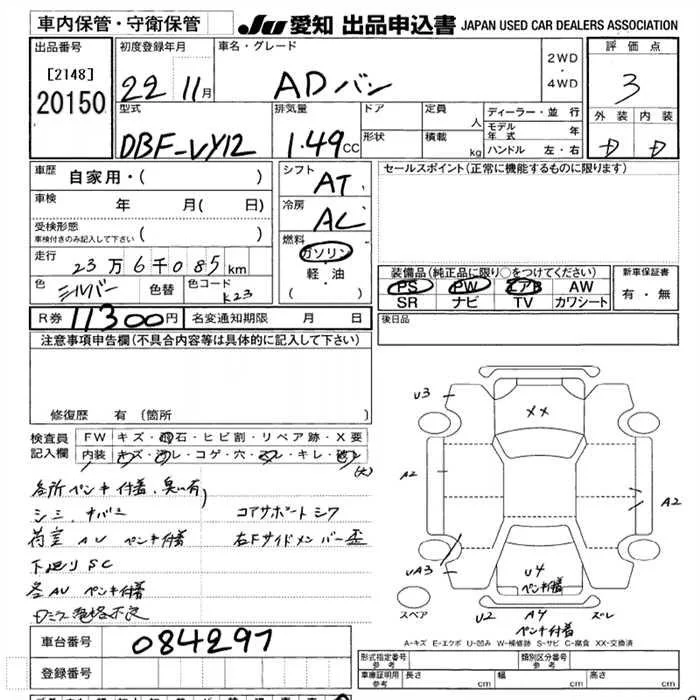 車内保管・守衛保管
JU 愛知 出品申込書 JAPAN USED CAR DEALERS ASSOCIATION
出品番号
[2148]
20150
初度登録年月
22 11月
車名・グレード
ADバン
2WD
・
4WD
評価点
3
外装 内装
D D
型式
DBF-VY12
排気量
1.49cc
ドア
形状
定員 人
積載 kg
ディーラー・並行
モデル年式 年
ハンドル 左・右
車歴 自家用・( )
車検 年 月( 日)
受検形態
車検付きのみ記入して下さい ( )
走行
23万6千085km
色 シルバー 色替 色コード K23
シフト
AT
冷房
AC
燃料
ガソリン
・
軽・油
( )
セールスポイント(正常に機能するものに限ります)
装備品(純正品に限り○をつけてください)
PS PW エアB AW
SR ナビ TV カワシート
新車保証書
有・無
R券 11300円 名変通知期限 月 日
後日品
注意事項申告欄(不具合内容等は具体的に記入して下さい)
修復歴 有 (箇所
検査員
記入欄
FW キズ・飛石・ヒビ割・リペア跡・X要
内装 キズ・汚レ・コゲ・穴・ヌレ・キレ・破レ
(大)
各所ペンキ付着、臭い有
コアサポートシワ
荷室 AU ペンキ付着
右Fサイドメンバー歪
下廻りSC
各AU ペンキ付着
U3
XX
A2
A2
UA3
U4
ペンキ付着
スペア
U2 A4 ズレ
ペンキ付着
A-キズ E-エクボ U-凹み W-補修跡 S-サビ C-腐食 XX-交換済
車台番号 084297
登録番号
形式指定番号
参考
類別区分番号
参考
車庫証明用
参考
長さ cm
幅 cm
高さ cm